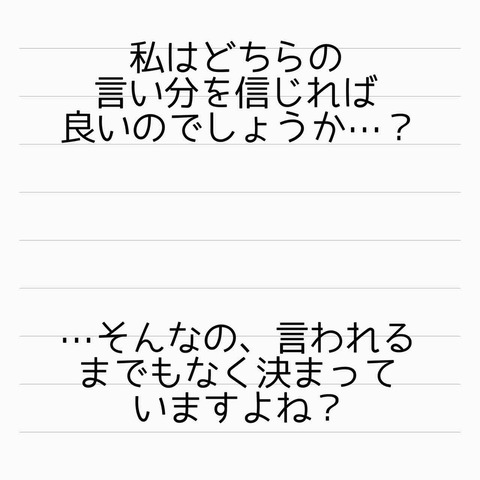 私はどちらの
言い分を信じれば
良いのでしょうか…？
…そんなの、言われる
までもなく決まって
いますよね？